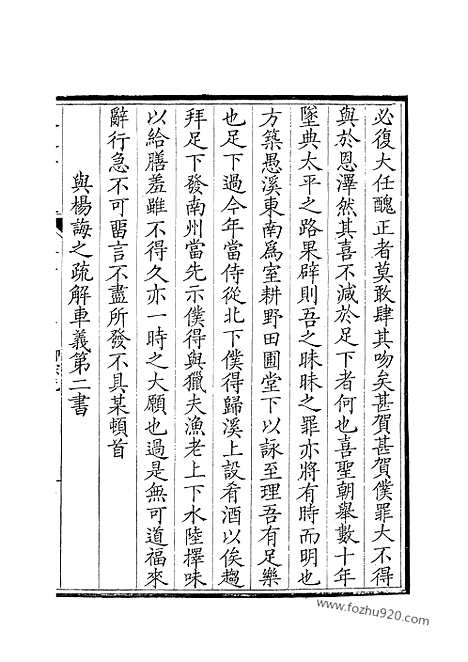 必復大任醜正者莫敢肆其吻矣甚賀甚賀僕罪大不得
與於恩澤然其喜不減於足下者何也喜聖朝舉數十年
墜典太平之路果辟則吾之昧昧之罪亦將有時而明也
方築愚溪東南爲室耕野田圃堂下以詠至理吾有足樂
也足下過今年當侍從北下僕得歸溪上設肴酒以俟趨
拜足下發南州當先示僕得與獵夫漁老上下水陸擇味
以給膳羞雖不得久亦一時之大願也過是無可道福來
辭行急不可留言不盡所發不具某頓首
與楊誨之疏解車義第二書
www.fozhu920.com